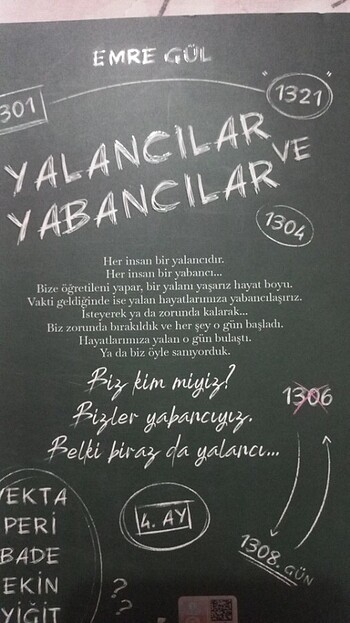 EMRE GÜL
301
"1321"
YALANCILAR
VE
YABANCILAR
1304
Her insan bir yalancıdır.
Her insan bir yabancı...
Bize öğretileni yapar, bir yalanı yaşarız hayat boyu.
Vakti geldiğinde ise yalan hayatlarımıza yabancılaşırız.
İsteyerek ya da zorunda kalarak...
Biz zorunda bırakıldık ve her şey o gün başladı.
Hayatlarımıza yalan o gün bulaştı.
Ya da biz öyle sanıyorduk.
Biz kim miyiz?
1306
Bizler yabancıyız.
Belki biraz da yalancı...
VEKTA
PERİ
BADE
EKİN
YİĞİT
4. AY
1308. GÜN
?
?